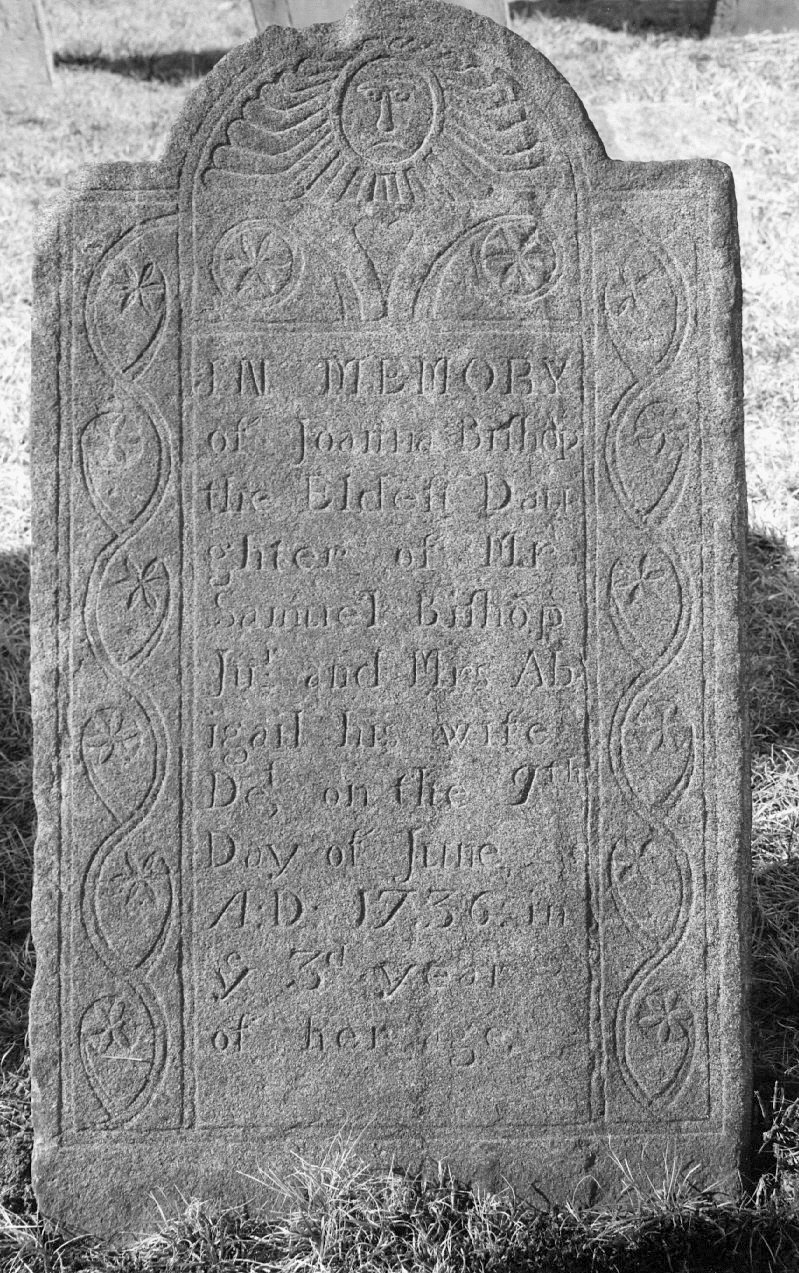 IN MEMORY
of Joanna Bishop
the Eldeſt Dau
ghter of Mr.
Samuel Biſhop
Junr. and Mrs Ab
igail his wife
Decd. on the 9th
Day of June
A:D: 1736. in
ye 3d year
of her age.